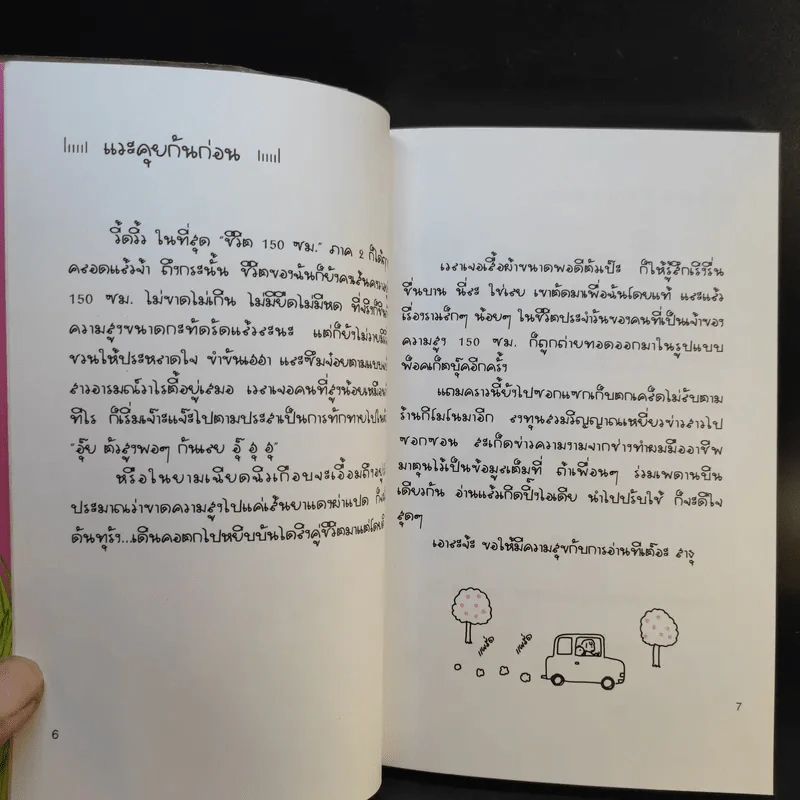 แวะคุยกันก่อน
วี้ดวิ้ว ในที่สุด "ชีวิต 150 ซม." ภาค 2 ก็ได้
คลอดแล้วจ้า ถึงกระนั้น ชีวิตของฉันก็ยังคง
150 ซม. ไม่ขาดไม่เกิน ไม่มียืดไม่มีหด
ความสูงขนาดกะทัดรัดแล้วละนะ แต่ก็ยังไม่วาย
ชวนให้ประหลาดใจ ขำขันเฮฮา และซึมจ๋อยตามแบบ
สาวอารมณ์วาไรตี้อยู่เสมอ เวลาเจอคนที่สูงน้อยเหมือน
ทีไร ก็เริ่มเจ๊าะแจ๊ะไปตามประสาเป็นการทักทายไป
"อุ๊ย ตัวสูงพอๆ กันเลย อุ๊ อุ อุ"
หรือในยามเฉียดฉิวเกือบจะเอื้อมถึง
ประมาณว่าขาดความสูงไปแค่เส้นยาแดงผ่าแปด
ดันทุรัง...เดินคอตกไปหยิบบันไดลิงคู่ชีวิตมาแต่โดยดี
6
เวลาเจอเสื้อผ้าขนาดพอดีตัวเป๊ะ ก็ให้รู้สึกเริงรื่น
ชื่นบาน นี่ละ ใช่เลย เขาตัดมาเพื่อฉันโดยแท้ และแล้ว
เรื่องราวเล็กๆ น้อยๆ ในชีวิตประจำวันของคนที่เป็นเจ้าของ
ความสูง 150 ซม. ก็ถูกถ่ายทอดออกมาในรูปแบบ
พ็อคเก็ตบุ๊คอีกครั้ง
แถมคราวนี้ยังไปซอกแซกเก็บตกเคล็ดไม่ลับตาม
ร้านกิโมโนมาอีก ลงทุนสวมวิญญาณเหยี่ยวข่าวสาวไป
ซอกซอน สะเก็ดข่าวความงามจากช่างทำผมมืออาชีพ
มาตุนไว้เป็นข้อมูลเต็มที่ ถ้าเพื่อนๆ ร่วมเพดานบิน
เดียวกัน อ่านแล้วเกิดปิ๊งไอเดีย นำไปปรับใช้ ก็จะดีใจ
สุดๆ
เอาละจ้ะ ขอให้มีความสุขกับการอ่านทีเต๊อะ สาธุ
7